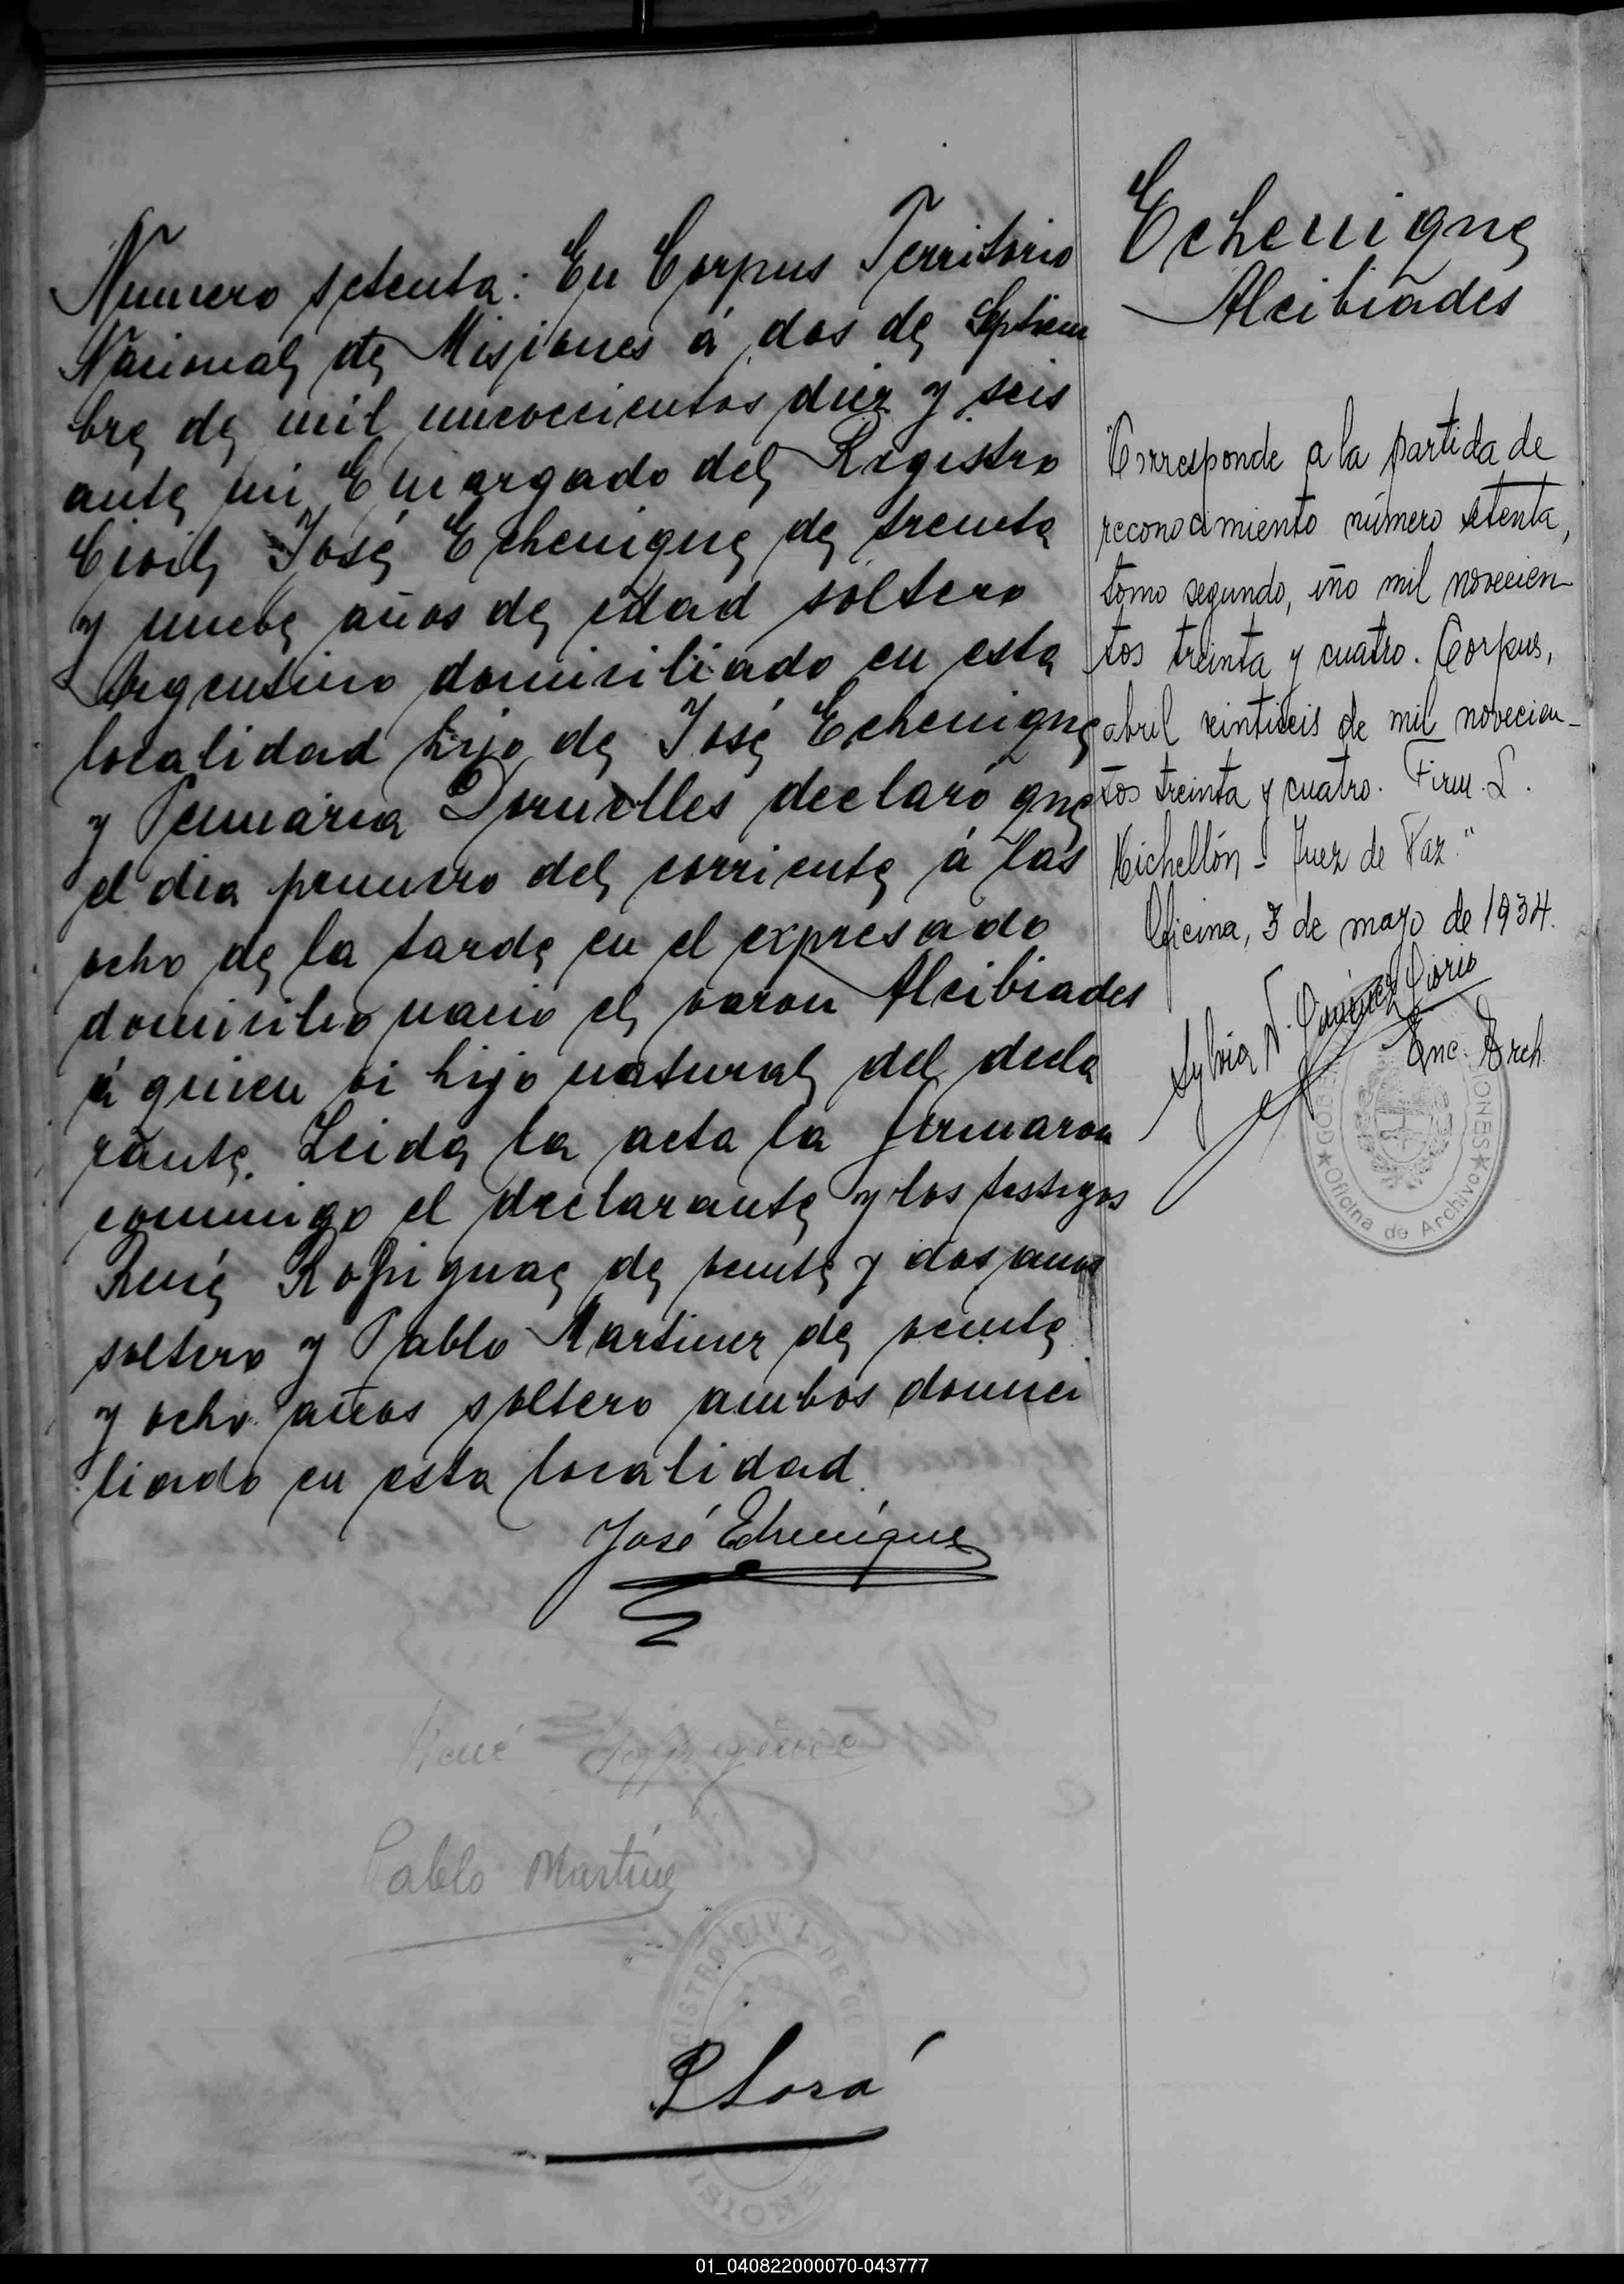 Numero setenta: En Corpus Territorio
Nacional de Misiones á dos de Septiem
bre de mil nuevecientos diez y seis
ante mi Encargado del Registro
Civil José Echenique de treinta
y nueve años de edad soltero
Argentino domisiliado en esta
localidad hijo de José Echenique
y declaró que
el dia primero del corriente á las
ocho de la tarde en el expresado
domisilio nacio el varon Alcibiades
á quien vi hijo natural del decla
rante. Leida la acta la firmaron
conmigo el declarante y los testigos
René de veinte y dos años
soltero y Pablo Martinez de veinte
y ocho años soltero ambos domici
liado en esta localidad.
José Echenique
René
Pablo Martinez
REGISTRO CIVIL DE
MISIONES
Echenique
Alcibiades
"Corresponde a la partida de
reconocimiento número setenta,
tomo segundo, año mil novecien-
tos treinta y cuatro. Corpus,
abril veintiseis de mil novecien-
tos treinta y cuatro. Firm. L.
Michellón - Juez de Paz."
Oficina, 3 de mayo de 1934.
Sylvia N.
Enc. Arch.
Oficina de Archivo
01_040822000070-043777